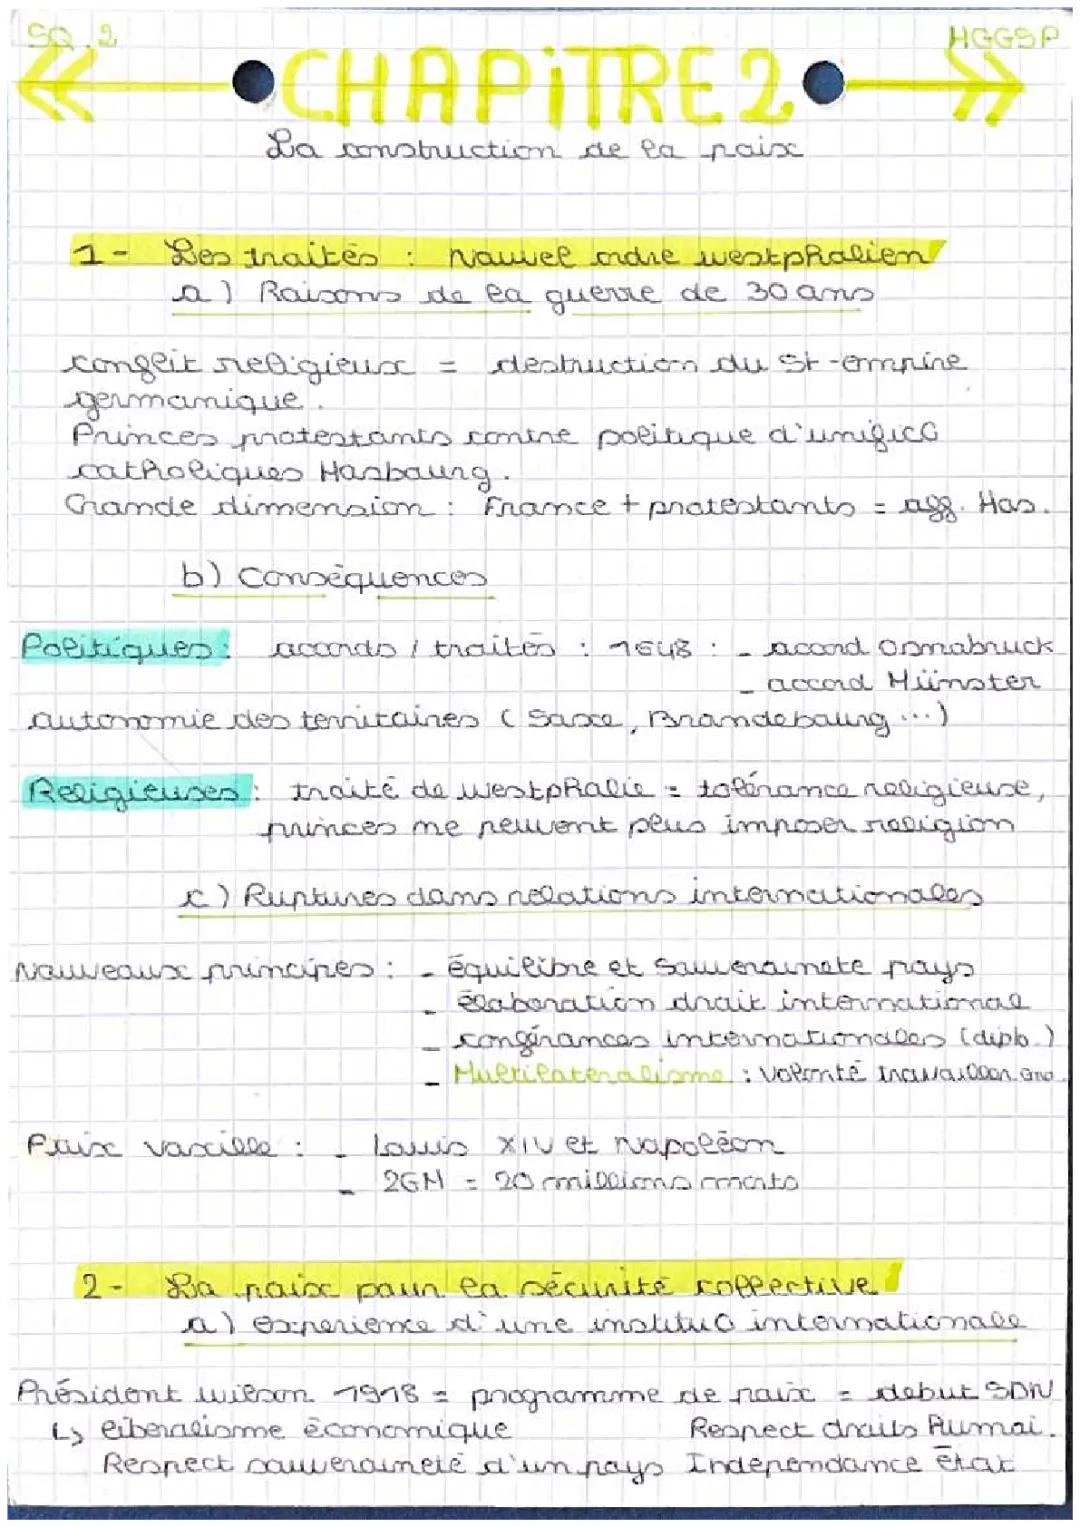 SQ.2
HGGSP
CHAPiTRE 2
La construction de la paix
1- Les traités : nouvel ordre westphalien
a) Raisons de la guerre de 30 ans
conflit religieux = destruction du St-empire
germanique.
Princes protestants contre politique d'unific°
catholiques Hasbourg.
Grande dimension : France + protestants = aff. Has.
b) Conséquences
Politiques: accords / traités : 1648 : - accord Osnabruck
- accord Münster
autonomie des territoires (Saxe, Brandebourg ...)
Religieuses : traité de westphalie = tolérance religieuse,
princes ne peuvent plus imposer religion
c) Ruptures dans relations internationales
Nouveaux principes : - équilibre et Souverainete pays
- élaboration droit international
- conférances internationales (diplo.)
- Multilateralisme : volonté travailler ens.
Paix vaxille : - Louis XIV et Napoléon
- 2GM = 20 millions morts
2- La paix pour la sécurité collective
a) experience d'une institut° internationale
Président wilson 1918 = programme de paix = debut SDN
↳ liberalisme économique Respect droits humai.
Respect souveraineté d'un pays Independance État